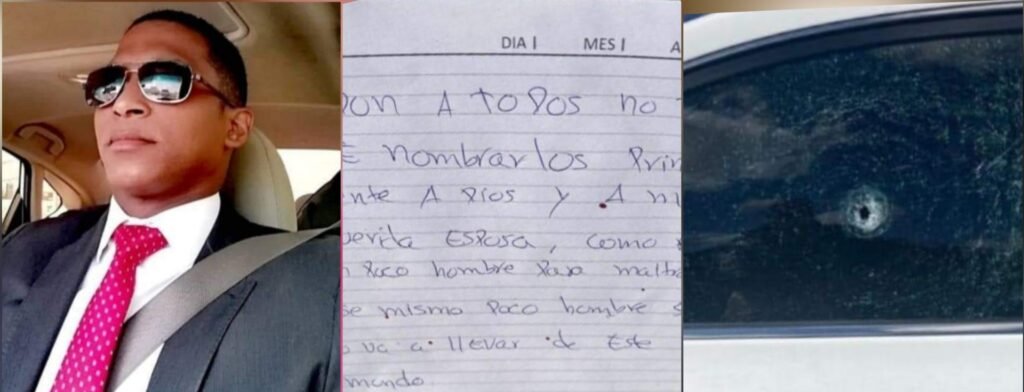 DIA MES A
DON A TODOS NO
E NOMbRARLOS PRIN
NTE A DIOS Y A M
UERIDA ESPOSA, COMO
POCO hombre PARA MALtRA
SE MISMO POCO hombre S
VA A llEVAR DE ESTE
MUNDO